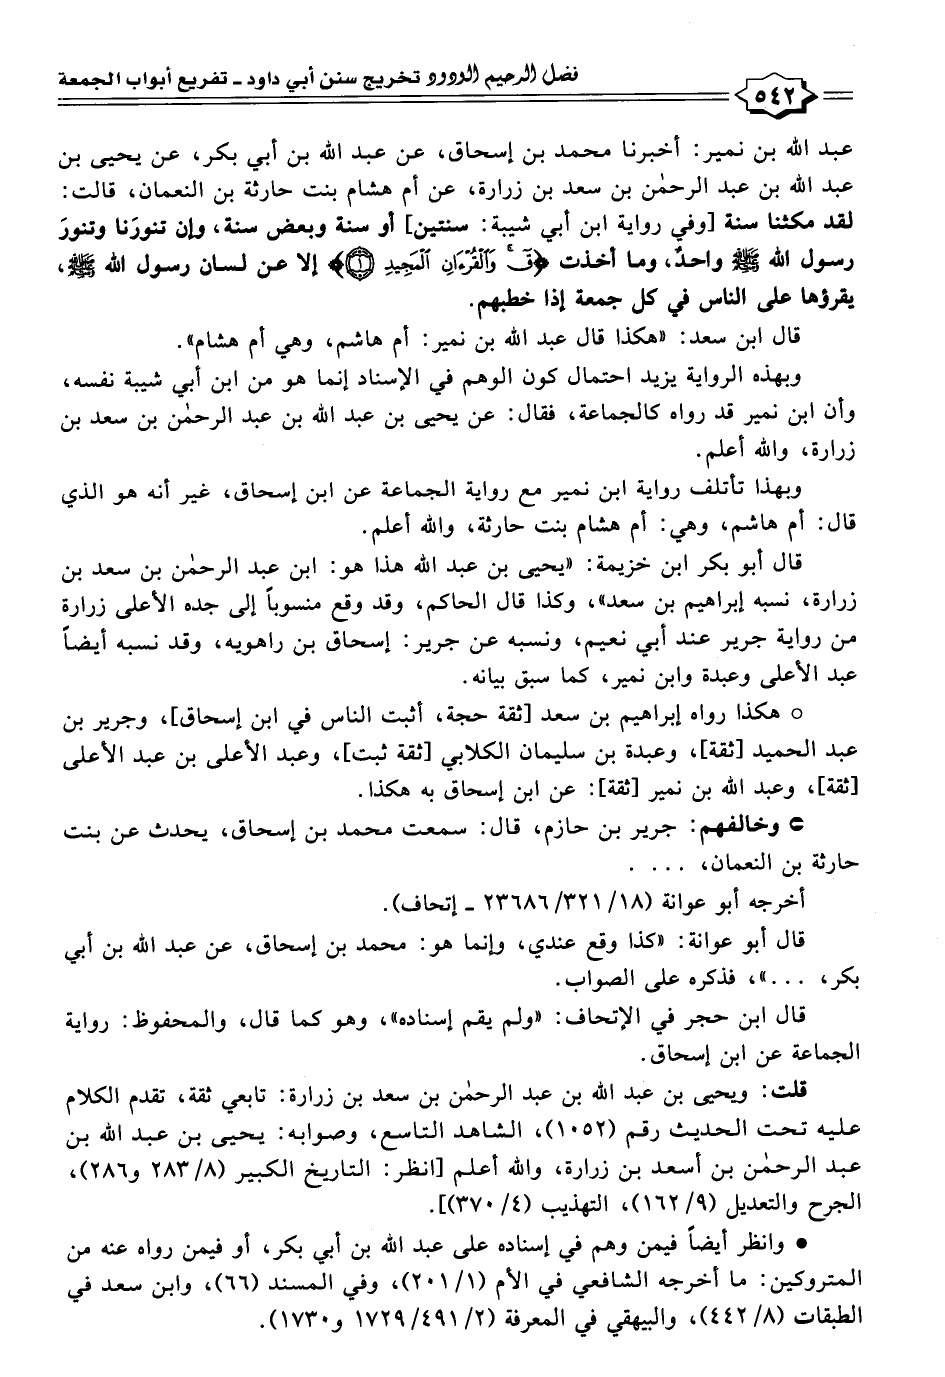 فضل الرحيم الودود تخريج سنن أبي داود ـ تفريع أبواب الجمعة
٥٤٢
عبد الله بن نمير: أخبرنا محمد بن إسحاق، عن عبد الله بن أبي بكر، عن يحيى بن
عبد الله بن عبد الرحمٰن بن سعد بن زرارة، عن أم هشام بنت حارثة بن النعمان، قالت:
لقد مكثنا سنة [وفي رواية ابن أبي شيبة: سنتين] أو سنة وبعض سنة، وإن تنورَنا وتنورَ
رسول الله ﷺ واحدٌ، وما أخذت ﴿قٓ ۚ وَٱلْقُرْءَانِ ٱلْمَجِيدِ ۝١﴾ إلا عن لسان رسول الله ﷺ،
يقرؤها على الناس في كل جمعة إذا خطبهم.
قال ابن سعد: «هكذا قال عبد الله بن نمير: أم هاشم، وهي أم هشام».
وبهذه الرواية يزيد احتمال كون الوهم في الإسناد إنما هو من ابن أبي شيبة نفسه،
وأن ابن نمير قد رواه كالجماعة، فقال: عن يحيى بن عبد الله بن عبد الرحمٰن بن سعد بن
زرارة، والله أعلم.
وبهذا تأتلف رواية ابن نمير مع رواية الجماعة عن ابن إسحاق، غير أنه هو الذي
قال: أم هاشم، وهي: أم هشام بنت حارثة، والله أعلم.
قال أبو بكر ابن خزيمة: «يحيى بن عبد الله هذا هو: ابن عبد الرحمٰن بن سعد بن
زرارة، نسبه إبراهيم بن سعد»، وكذا قال الحاكم، وقد وقع منسوباً إلى جده الأعلى زرارة
من رواية جرير عند أبي نعيم، ونسبه عن جرير: إسحاق بن راهويه، وقد نسبه أيضاً
عبد الأعلى وعبدة وابن نمير، كما سبق بيانه.
○ هكذا رواه إبراهيم بن سعد [ثقة حجة، أثبت الناس في ابن إسحاق]، وجرير بن
عبد الحميد [ثقة]، وعبدة بن سليمان الكلابي [ثقة ثبت]، وعبد الأعلى بن عبد الأعلى
[ثقة]، وعبد الله بن نمير [ثقة]: عن ابن إسحاق به هكذا.
⊂ وخالفهم: جرير بن حازم، قال: سمعت محمد بن إسحاق، يحدث عن بنت
حارثة بن النعمان، . . . .
أخرجه أبو عوانة (١٨/ ٣٢١/ ٢٣٦٨٦ ـ إتحاف).
قال أبو عوانة: «كذا وقع عندي، وإنما هو: محمد بن إسحاق، عن عبد الله بن أبي
بكر، . . .»، فذكره على الصواب.
قال ابن حجر في الإتحاف: «ولم يقم إسناده»، وهو كما قال، والمحفوظ: رواية
الجماعة عن ابن إسحاق.
قلت: ويحيى بن عبد الله بن عبد الرحمٰن بن سعد بن زرارة: تابعي ثقة، تقدم الكلام
عليه تحت الحديث رقم (١٠٥٢)، الشاهد التاسع، وصوابه: يحيى بن عبد الله بن
عبد الرحمٰن بن أسعد بن زرارة، والله أعلم [انظر: التاريخ الكبير (٨/ ٢٨٣ و٢٨٦)،
الجرح والتعديل (٩/ ١٦٢)، التهذيب (٤/ ٣٧٠)].
• وانظر أيضاً فيمن وهم في إسناده على عبد الله بن أبي بكر، أو فيمن رواه عنه من
المتروكين: ما أخرجه الشافعي في الأم (١/ ٢٠١)، وفي المسند (٦٦)، وابن سعد في
الطبقات (٨/ ٤٤٢)، والبيهقي في المعرفة (٢/ ٤٩١/ ١٧٢٩ و١٧٣٠).